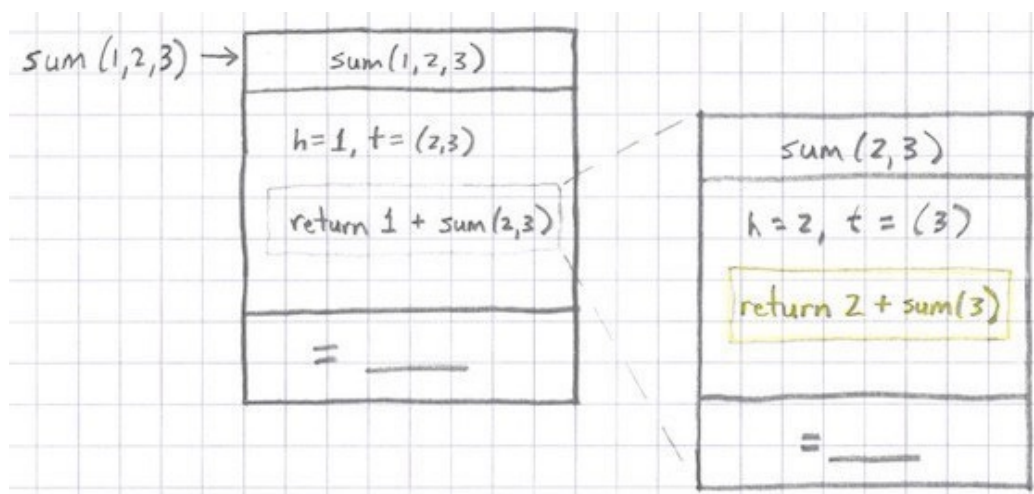 sum (1,2,3) →
sum(1,2,3)
h=1, t= (2,3)
return 1 + sum(2,3)
= ____
sum (2,3)
h = 2, t = (3)
return 2 + sum(3)
= ____